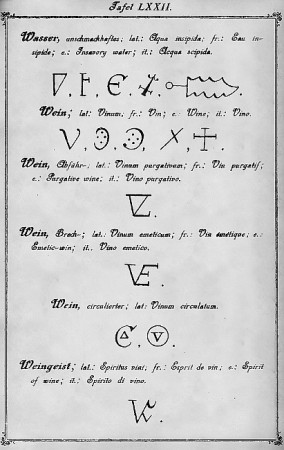 Tafel LXXII.
Wasser, unschmachhaftes; lat.: Aqua insipida; fr.: Eau in-
sipide; e.: Insavory water; it.: Acqua scipida.
Wein; lat.: Vinum; fr.: Vin; e.: Wine; it.: Vino.
Wein, Abführ-; lat.: Vinum purgativum; fr.: Vin purgatif;
e.: Purgative wine; it.: Vino purgativo.
Wein, Brech-; lat.: Vinum emeticum; fr.: Vin émétique; e.:
Emetic-win; it.: Vino emetico.
Wein, circulierter; lat: Vinum circulatum.
Weingeist; lat.: Spiritus vini; fr.: Esprit de vin; e.: Spirit
of wine; it.: Spirito di vino.